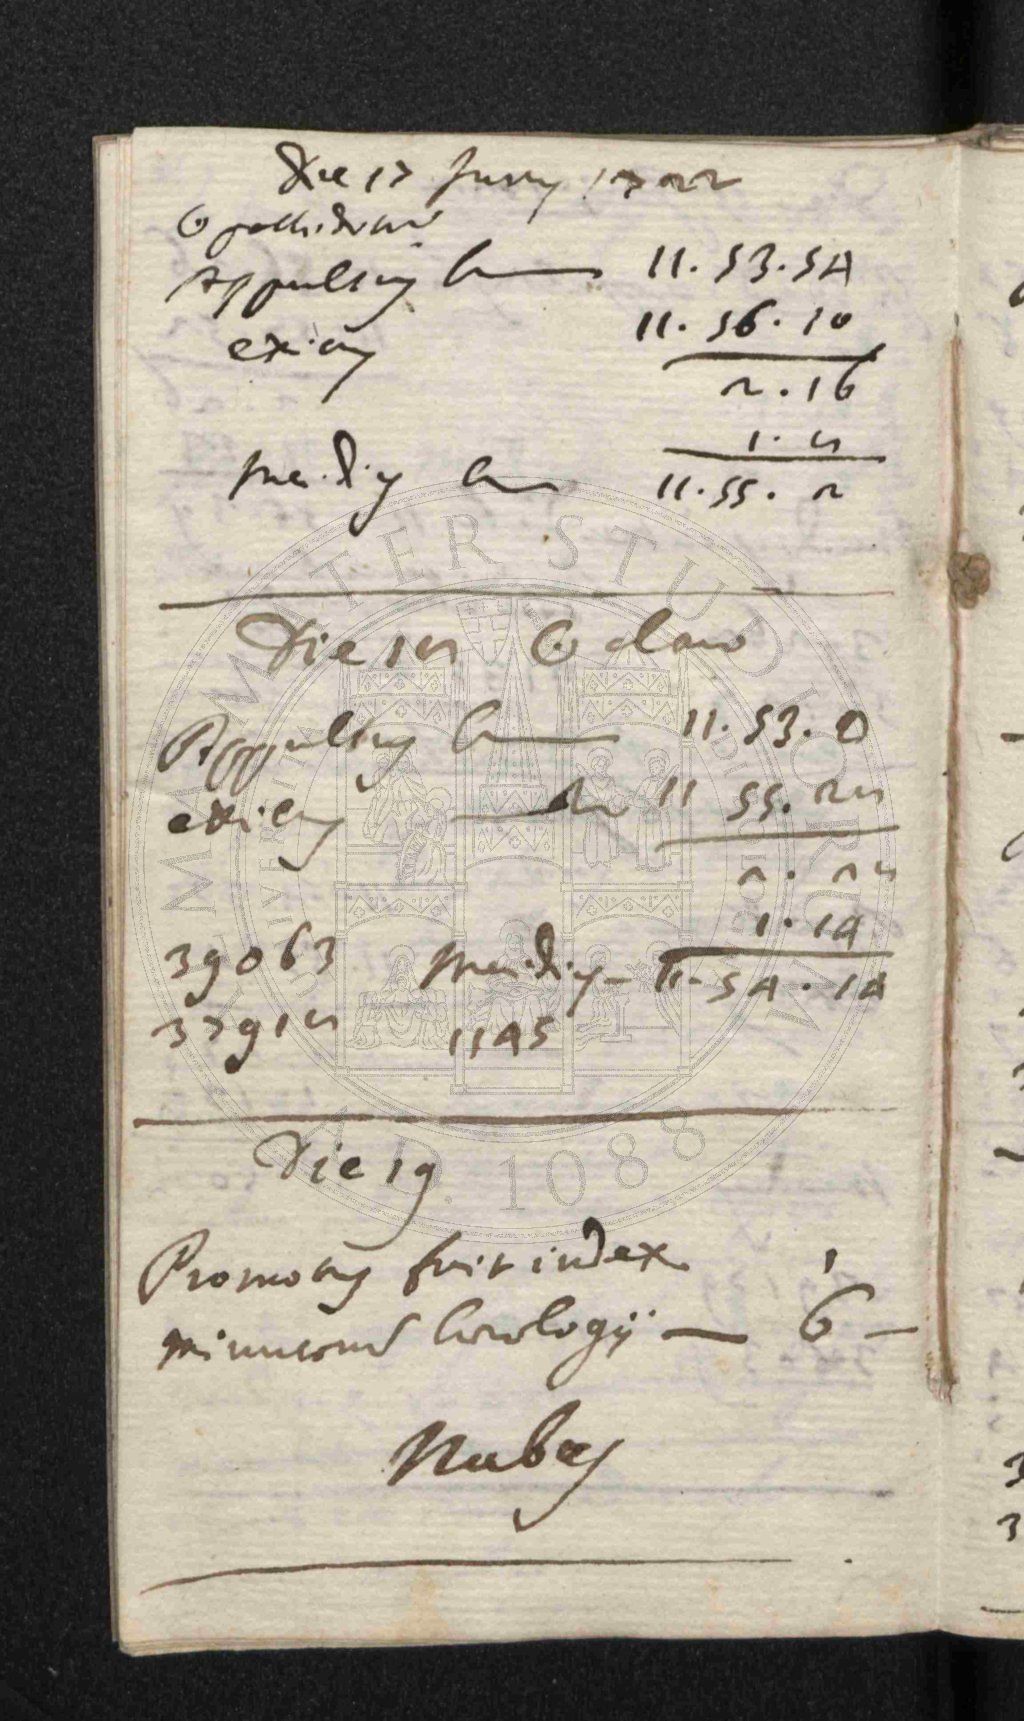 Die 17 Junij 1722
☉ pallidus
Appulsus h — 11.53.54
exitus 11.56.10
2.16
1.8
meridies h 11.55.2
Die 18 ☉ clarus
Appulsus h — 11.53.0
exitus — h 11 55.28
2.28
1.14
39063 meridies — 11.54.14
37918 1145
Die 19
Promotus fuit index
minutorum horologij — 6' —
Nubes
ALMA MATER STUDIORUM
A.D. 1088